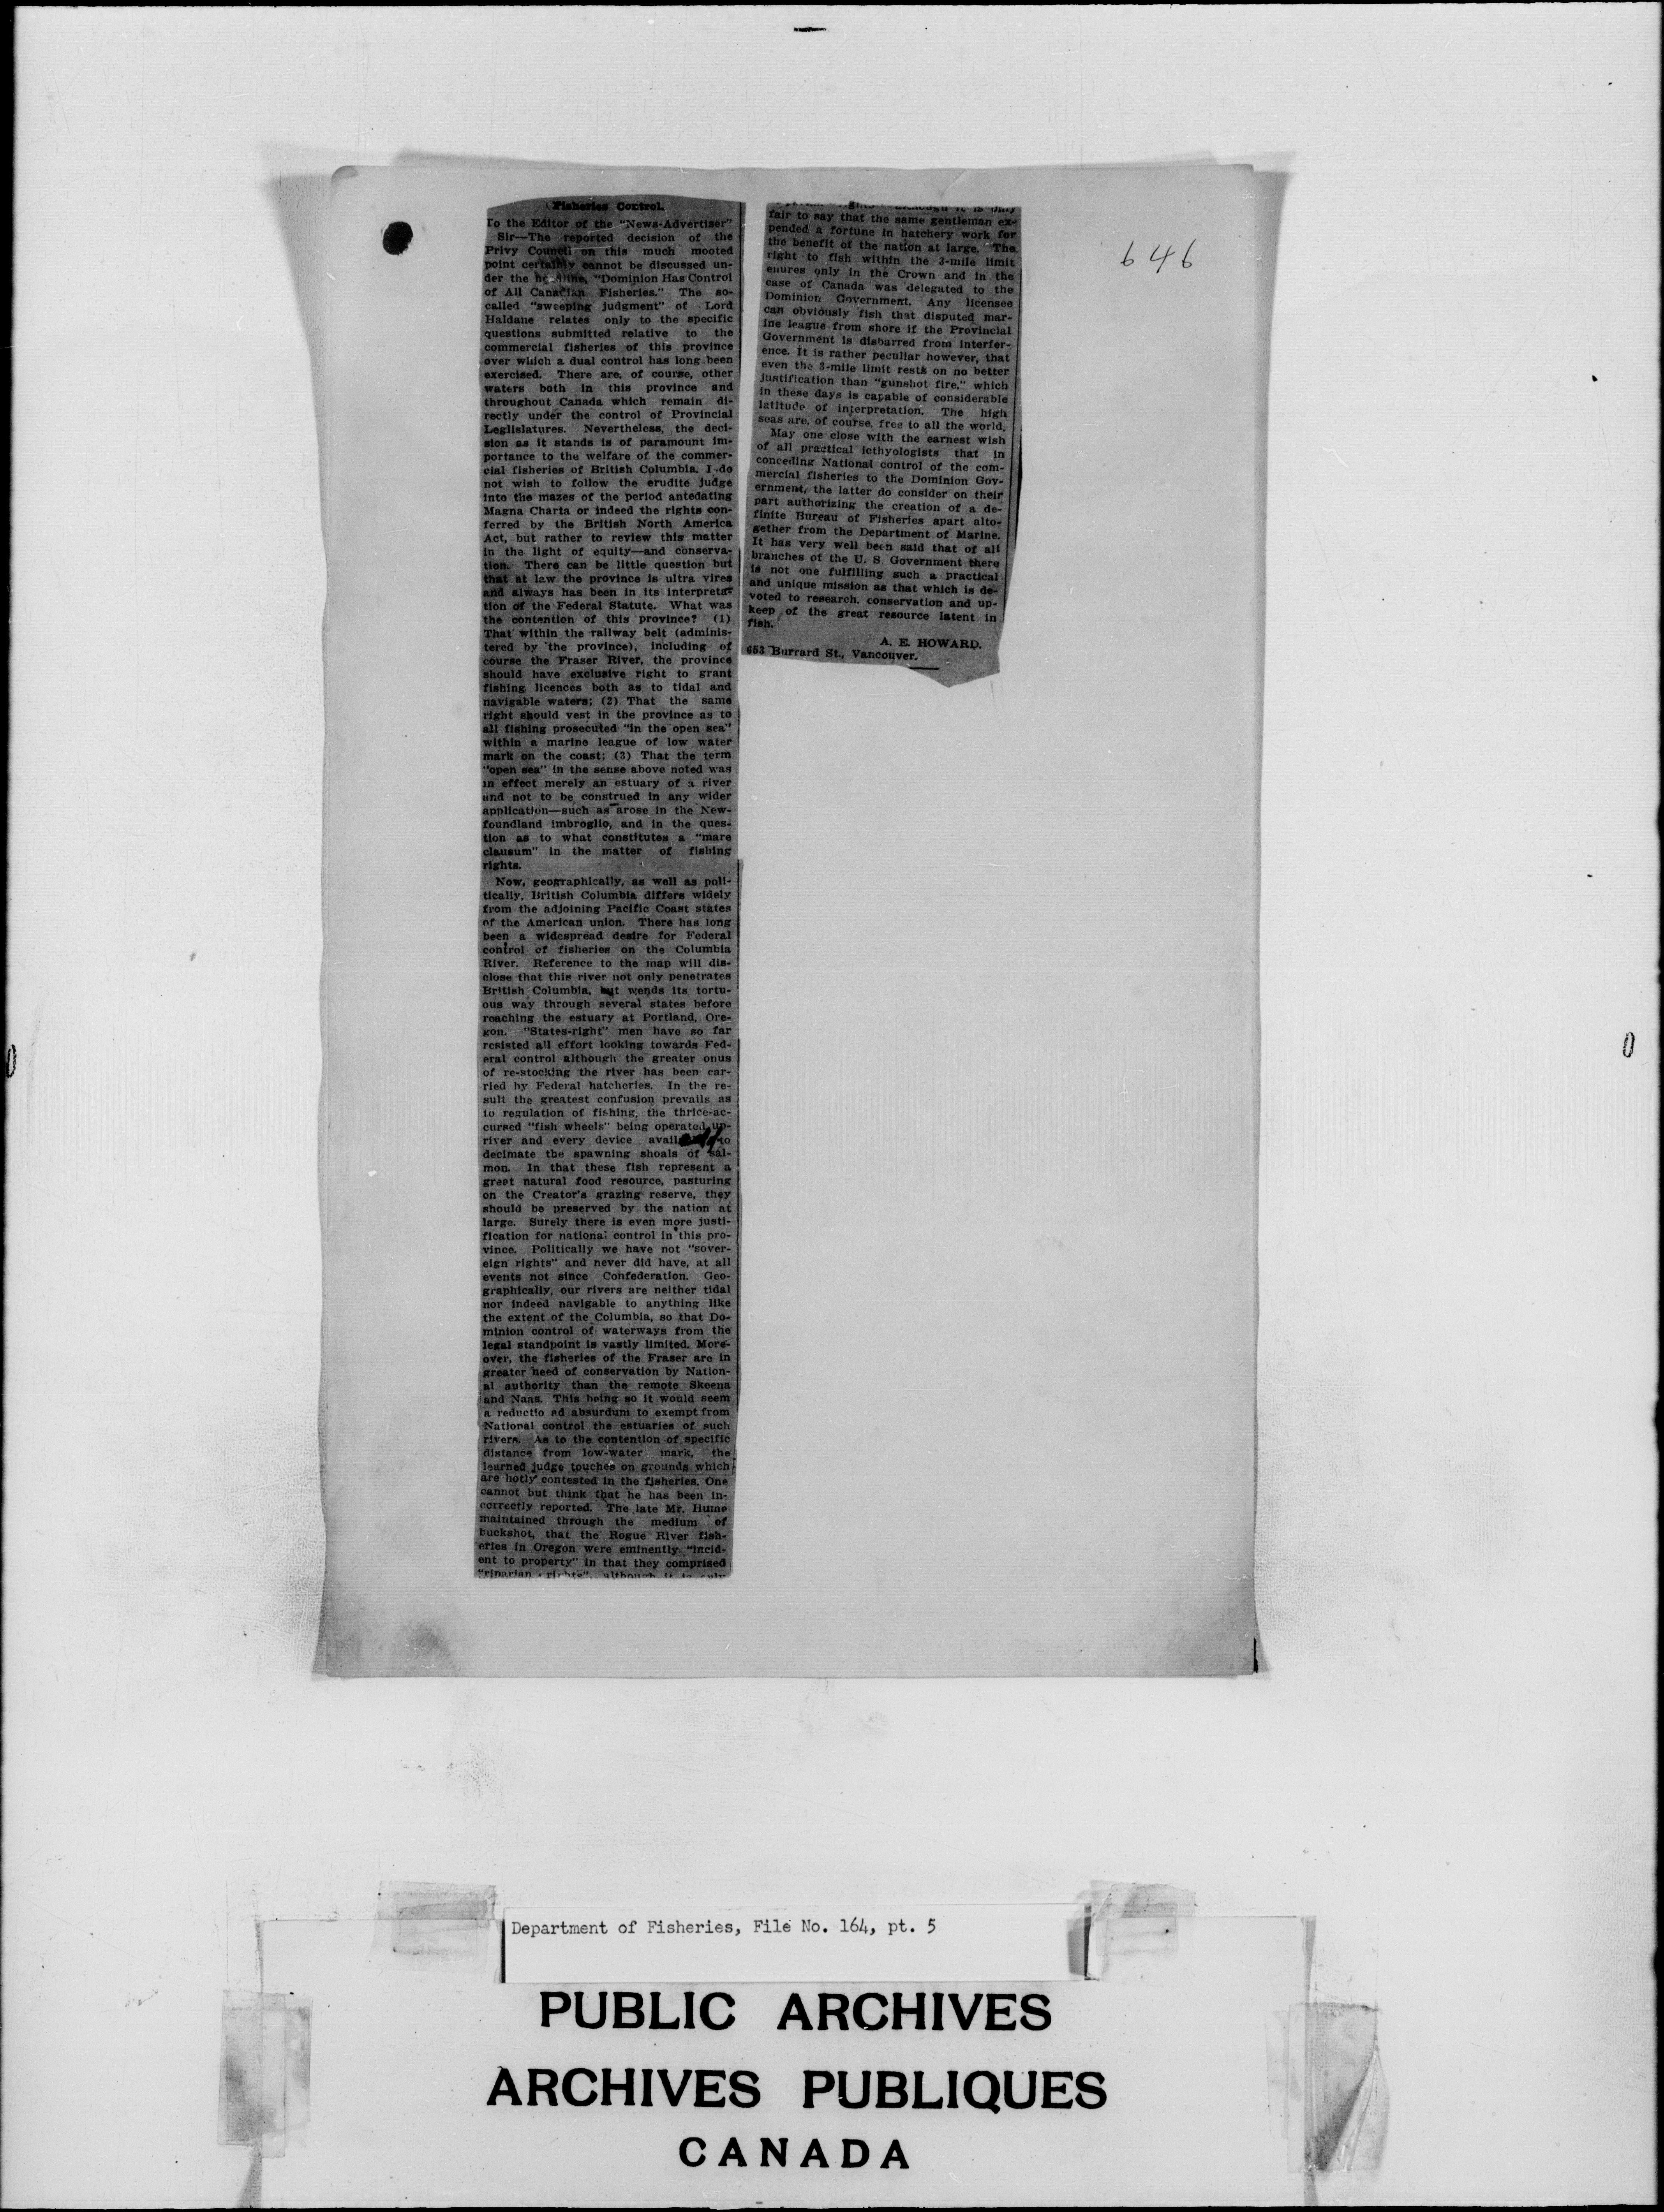 Fisheries Control.
To the Editor of the "News-Advertiser"
Sir—The reported decision of the
Privy Council on this much mooted
point certainly cannot be discussed un-
der the headline, "Dominion Has Control
of All Canadian Fisheries." The so-
called "sweeping judgment" of Lord
Haldane relates only to the specific
questions submitted relative to the
commercial fisheries of this province
over which a dual control has long been
exercised. There are, of course, other
waters both in this province and
throughout Canada which remain di-
rectly under the control of Provincial
Leglislatures. Nevertheless, the deci-
sion as it stands is of paramount im-
portance to the welfare of the commer-
cial fisheries of British Columbia. I do
not wish to follow the erudite judge
into the mazes of the period antedating
Magna Charta or indeed the rights con-
ferred by the British North America
Act, but rather to review this matter
in the light of equity—and conserva-
tion. There can be little question but
that at law the province is ultra vires
and always has been in its interpreta-
tion of the Federal Statute. What was
the contention of this province? (1)
That within the railway belt (adminis-
tered by the province), including of
course the Fraser River, the province
should have exclusive right to grant
fishing licences both as to tidal and
navigable waters; (2) That the same
right should vest in the province as to
all fishing prosecuted "in the open sea"
within a marine league of low water
mark on the coast; (3) That the term
"open sea" in the sense above noted was
in effect merely an estuary of a river
and not to be construed in any wider
application—such as arose in the New-
foundland imbroglio, and in the ques-
tion as to what constitutes a "mare
clausum" in the matter of fishing
rights.
Now, geographically, as well as poli-
tically, British Columbia differs widely
from the adjoining Pacific Coast states
of the American union. There has long
been a widespread desire for Federal
control of fisheries on the Columbia
River. Reference to the map will dis-
close that this river not only penetrates
British Columbia, but wends its tortu-
ous way through several states before
reaching the estuary at Portland, Ore-
gon. "States-right" men have so far
resisted all effort looking towards Fed-
eral control although the greater onus
of re-stocking the river has been car-
ried by Federal hatcheries. In the re-
sult the greatest confusion prevails as
to regulation of fishing, the thrice-ac-
cursed "fish wheels" being operated up-
river and every device to
decimate the spawning shoals of sal-
mon. In that these fish represent a
great natural food resource, pasturing
on the Creator's grazing reserve, they
should be preserved by the nation at
large. Surely there is even more justi-
fication for national control in this pro-
vince. Politically we have not "sover-
eign rights" and never did have, at all
events not since Confederation. Geo-
graphically, our rivers are neither tidal
nor indeed navigable to anything like
the extent of the Columbia, so that Do-
minion control of waterways from the
legal standpoint is vastly limited. More-
over, the fisheries of the Fraser are in
greater need of conservation by Nation-
al authority than the remote Skeena
and Naas. This being so it would seem
a reductio ad absurdum to exempt from
National control the estuaries of such
rivers. As to the contention of specific
distance from low-water mark, the
learned judge touches on grounds which
are hotly contested in the fisheries. One
cannot but think that he has been in-
correctly reported. The late Mr. Hume
maintained through the medium of
buckshot, that the Rogue River fish-
eries in Oregon were eminently "incid-
ent to property" in that they comprised
"riparian rights", although it is only
although it is only
fair to say that the same gentleman ex-
pended a fortune in hatchery work for
the benefit of the nation at large. The
right to fish within the 3-mile limit
enures only in the Crown and in the
case of Canada was delegated to the
Dominion Government. Any licensee
can obviously fish that disputed mar-
ine league from shore if the Provincial
Government is disbarred from interfer-
ence. It is rather peculiar however, that
even the 3-mile limit rests on no better
justification than "gunshot fire," which
in these days is capable of considerable
latitude of interpretation. The high
seas are, of course, free to all the world.
May one close with the earnest wish
of all practical icthyologists that in
conceding National control of the com-
mercial fisheries to the Dominion Gov-
ernment, the latter do consider on their
part authorizing the creation of a de-
finite Bureau of Fisheries apart alto-
gether from the Department of Marine.
It has very well been said that of all
branches of the U. S Government there
is not one fulfilling such a practical
and unique mission as that which is de-
voted to research, conservation and up-
keep of the great resource latent in
fish.
A. E. HOWARD.
653 Burrard St., Vancouver.
646
Department of Fisheries, File No. 164, pt. 5
PUBLIC ARCHIVES
ARCHIVES PUBLIQUES
CANADA